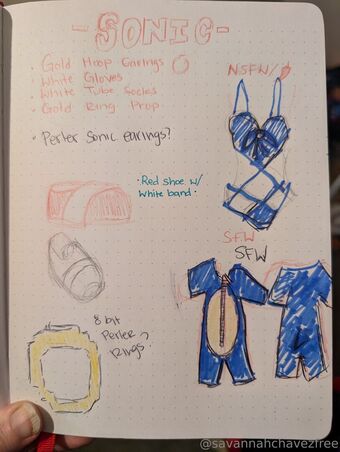 -SONIC-
· Gold Hoop Earings
· White Gloves
· White Tube Socks
· Gold Ring Prop
· Perler Sonic earings?
NSFW/
· Red shoe w/
white band.
SFW
SFW
8 bit
Perler
Rings?
@savannahchavezfree